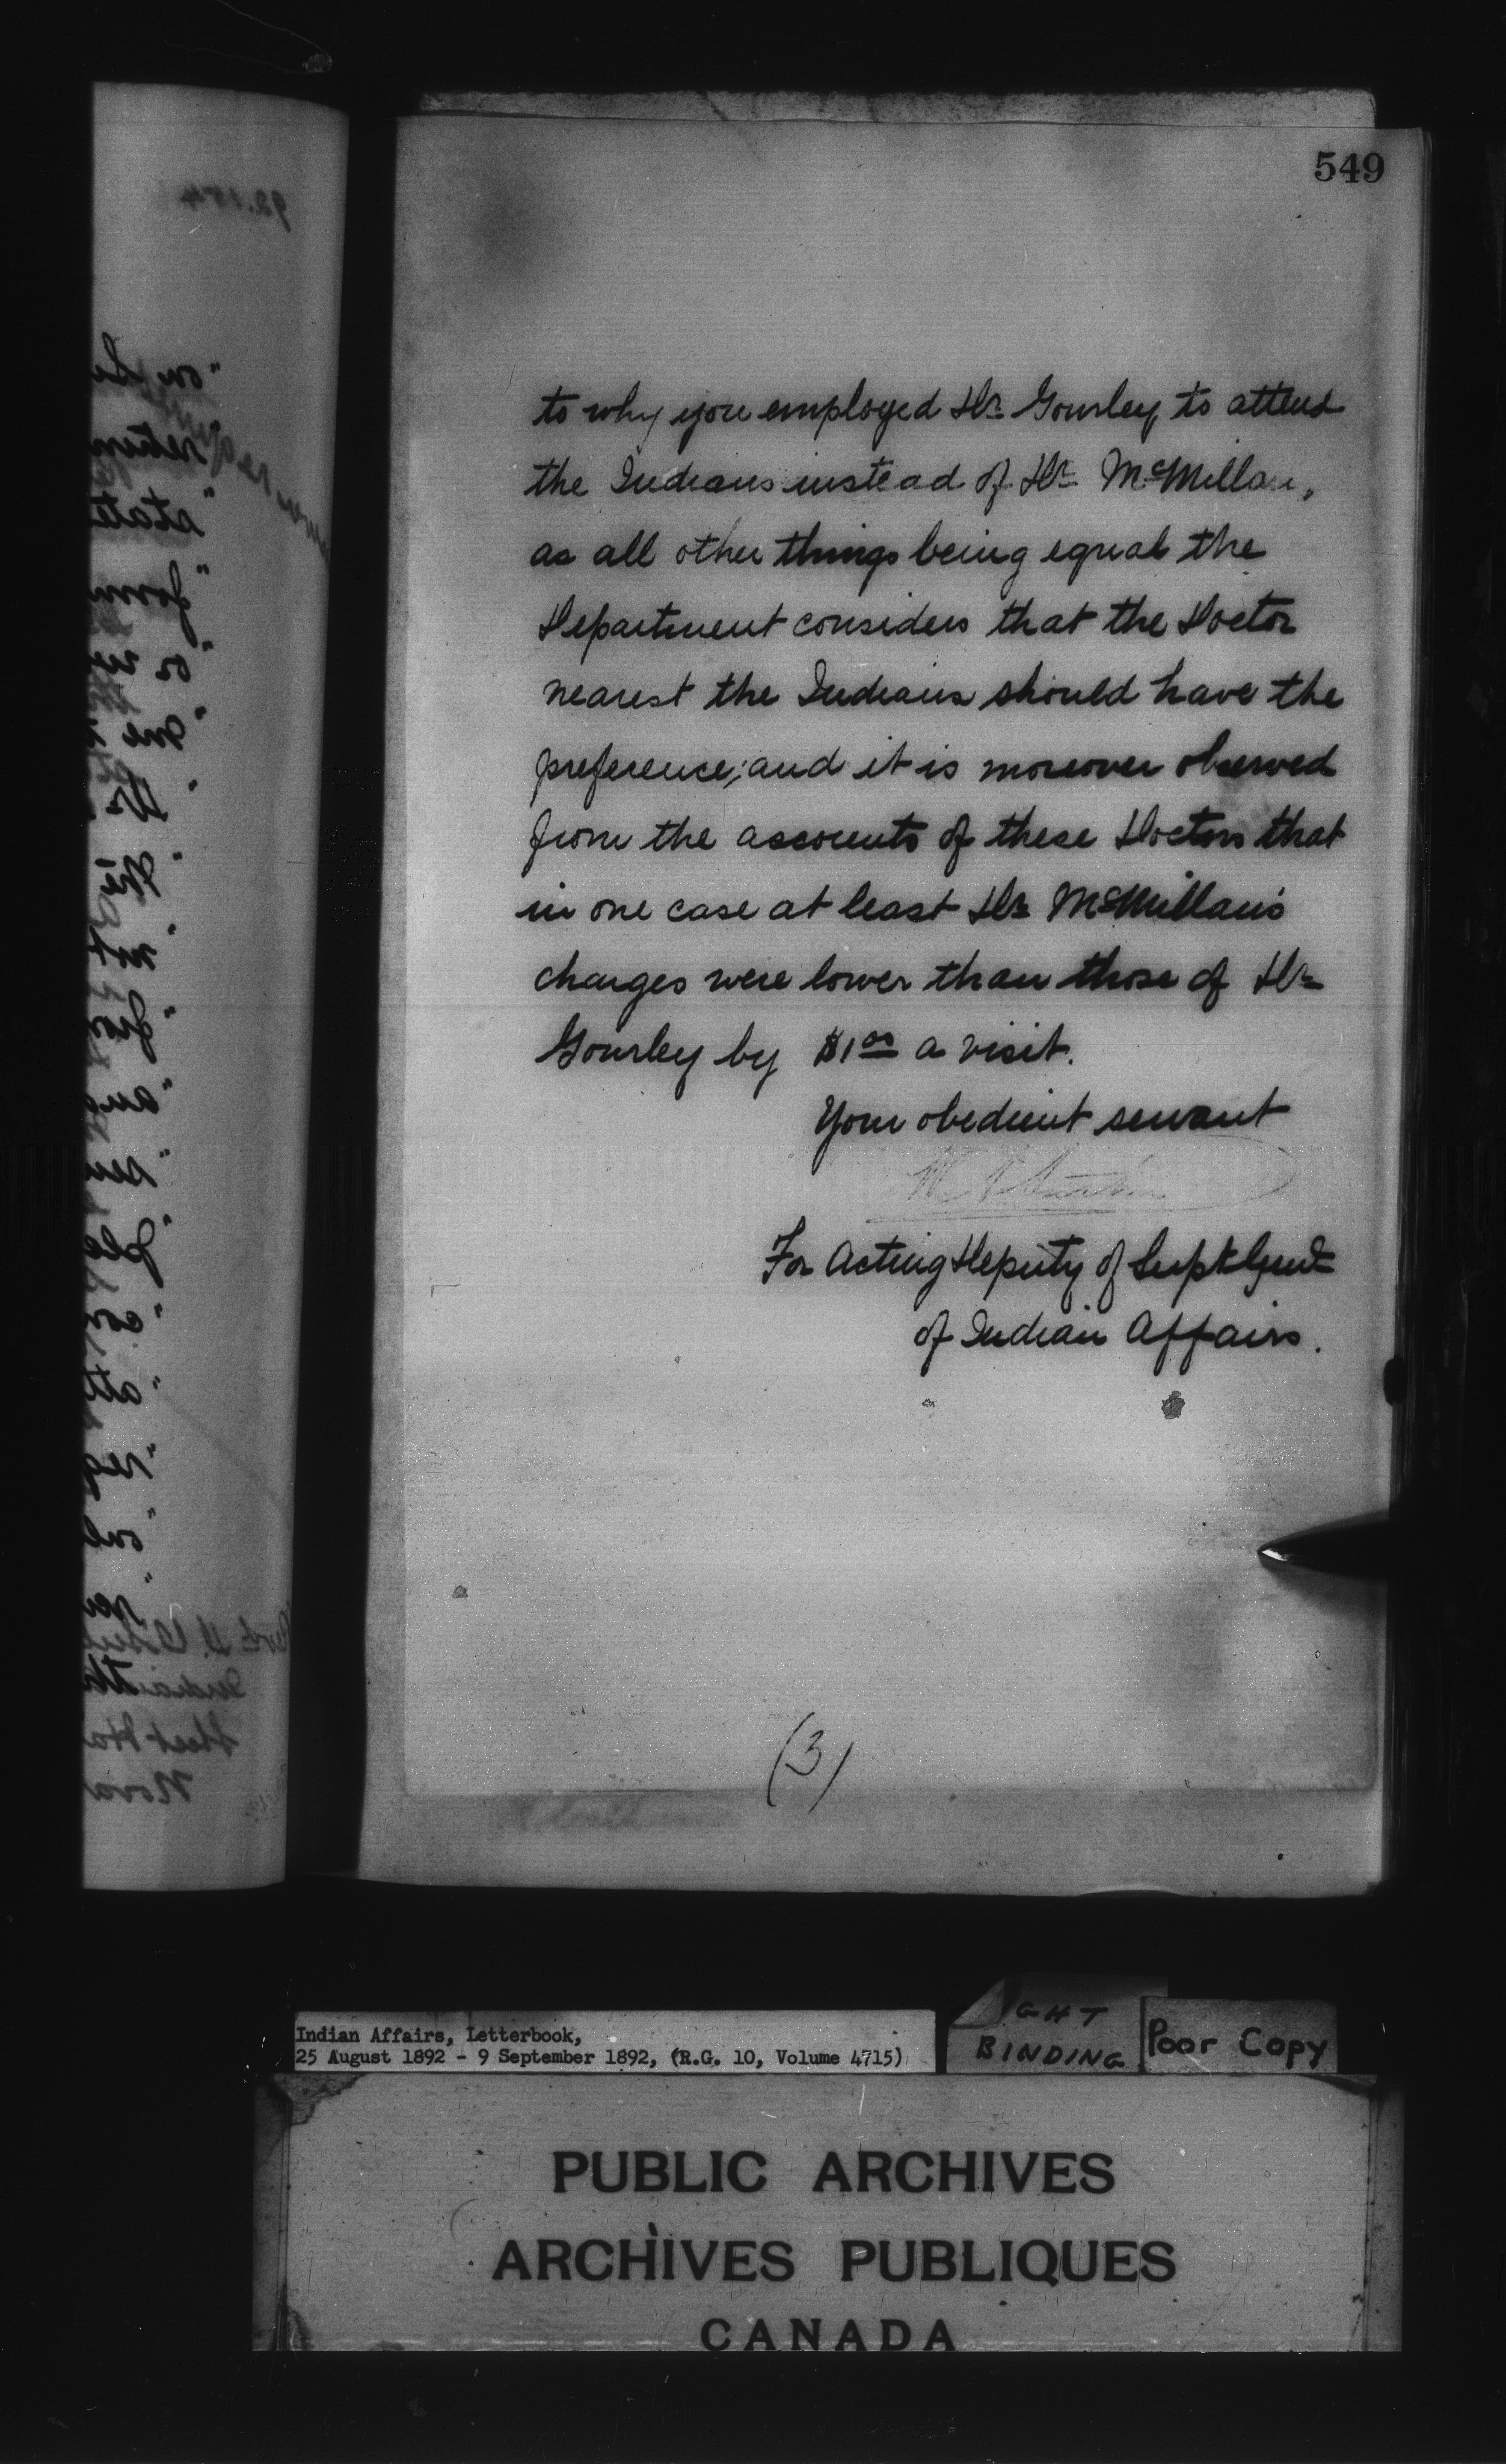 549
to why you employed Dr. Gourley to attend
the Indians instead of Dr. McMillan,
as all other things being equal the
Department considers that the Doctor
nearest the Indians should have the
preference; and it is moreover observed
from the accounts of these Doctors that
in one case at least Dr. McMillan's
charges were lower than those of Dr.
Gourley by $1.00 a visit.
Your obedient servant
For Acting Deputy of Supt. Genl.
of Indian Affairs.
(3)
Indian Affairs, Letterbook,
25 August 1892 - 9 September 1892, (R.G. 10, Volume 4715)
GHT
BINDING
Poor Copy
PUBLIC ARCHIVES
ARCHIVES PUBLIQUES
CANADA